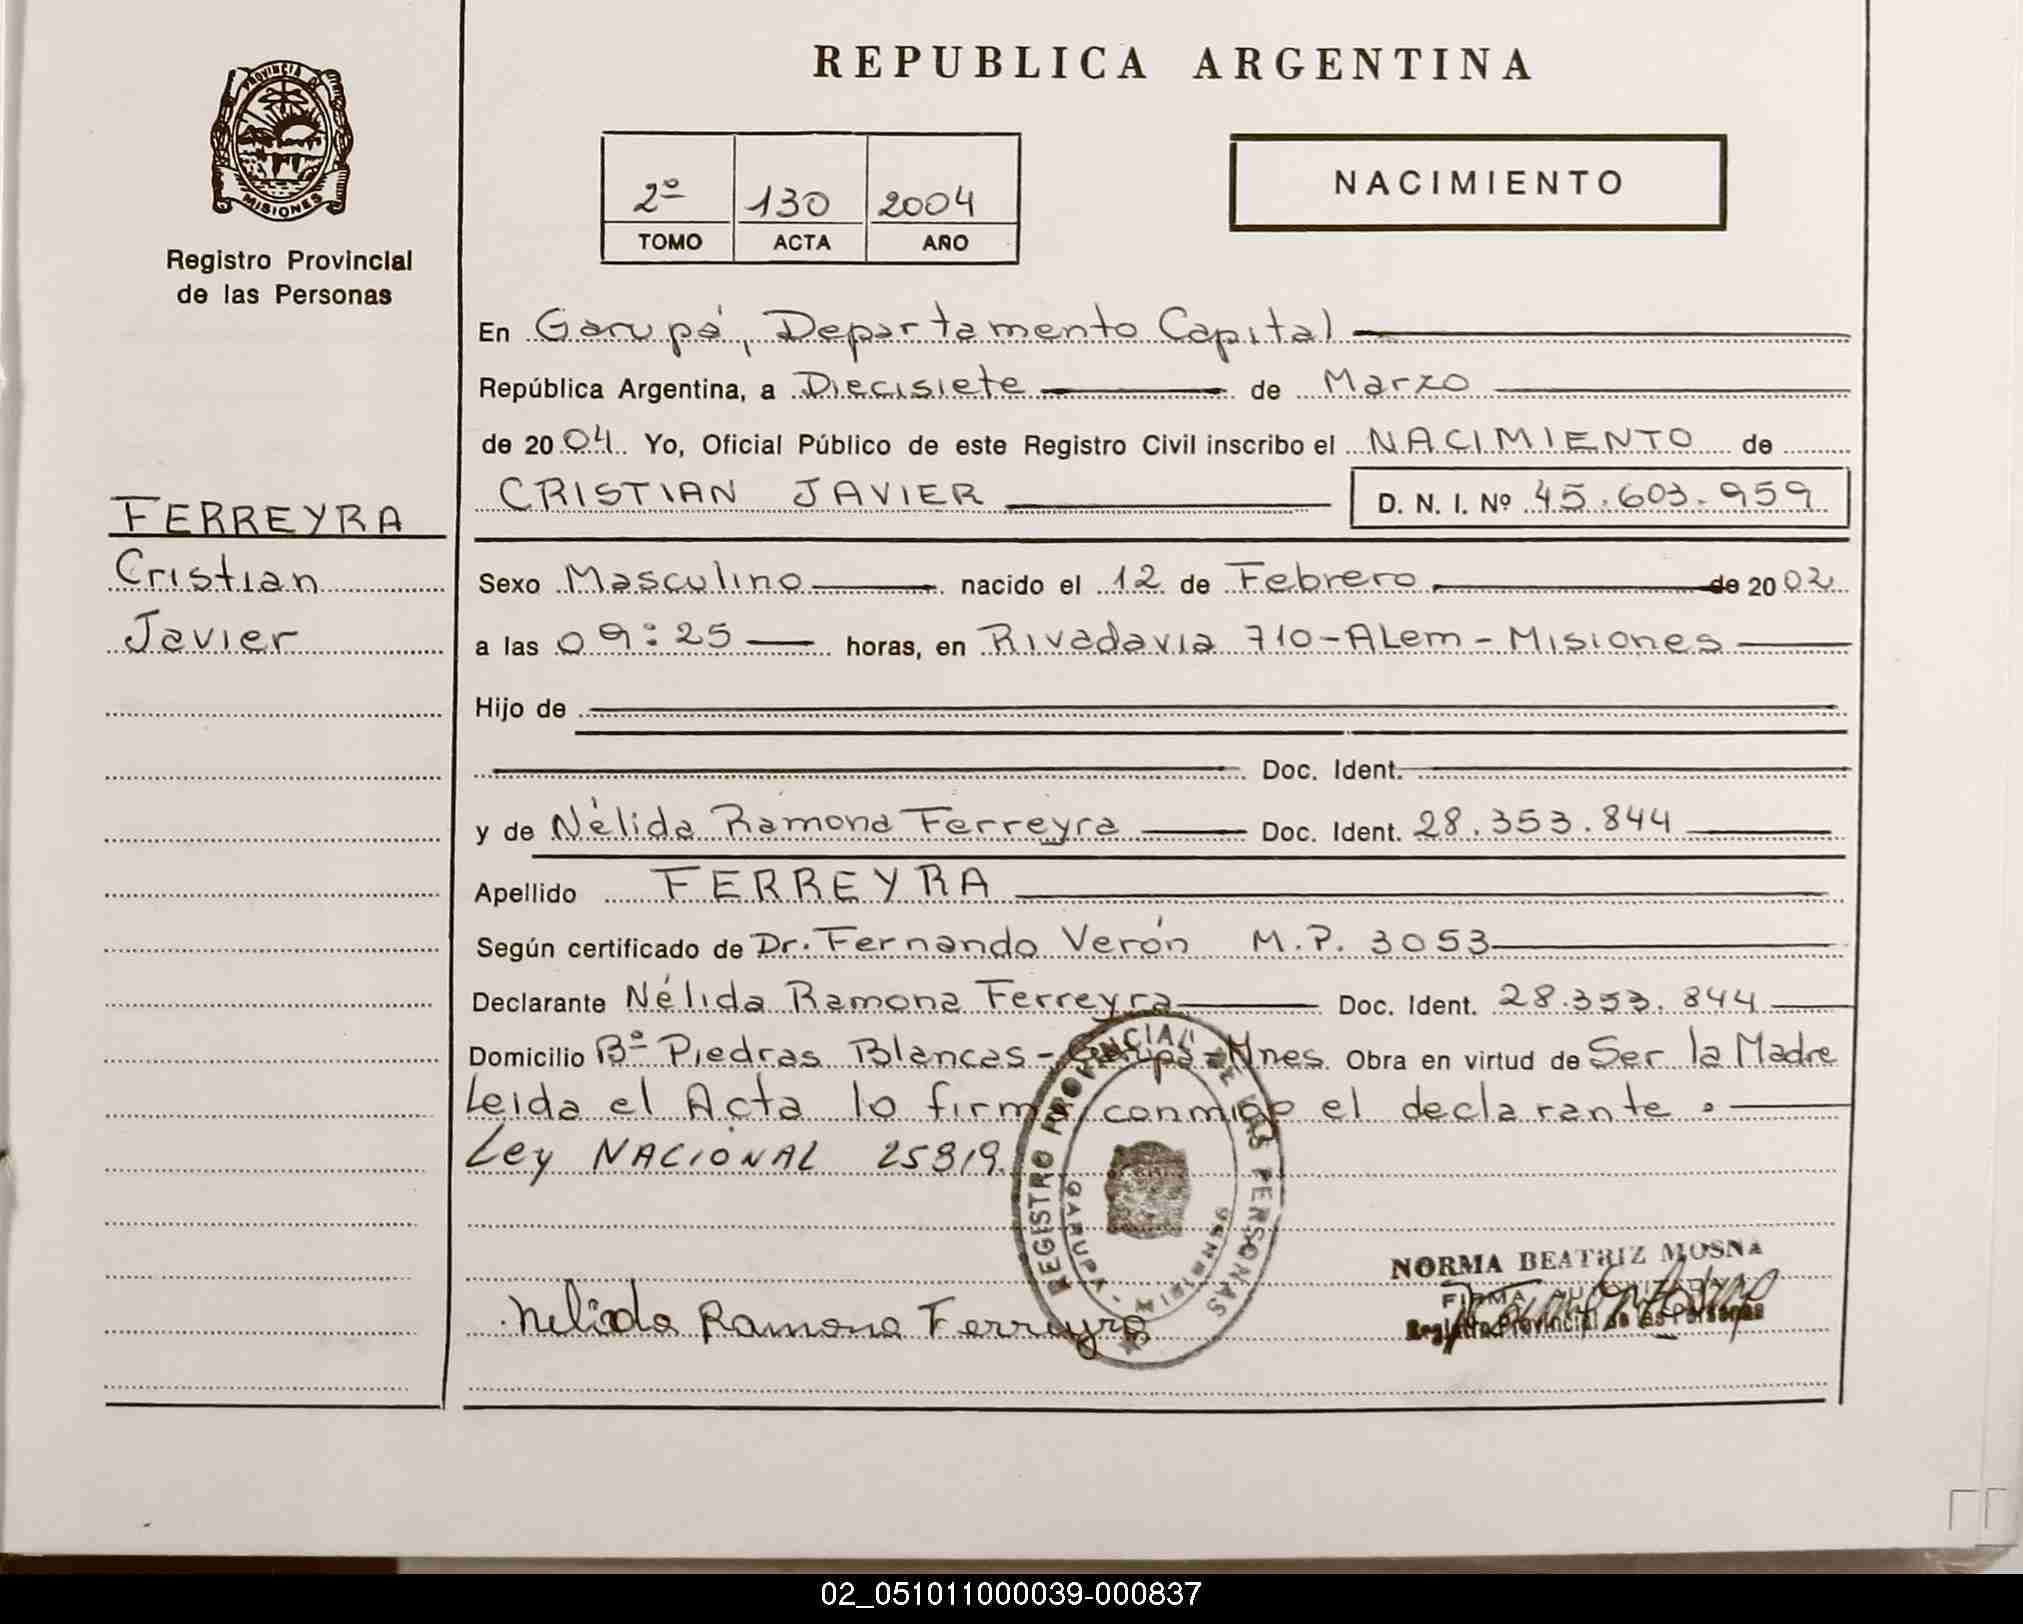 REPUBLICA ARGENTINA
PROVINCIA DE
MISIONES
Registro Provincial
de las Personas
2º 130 2004
TOMO ACTA AÑO
NACIMIENTO
FERREYRA
Cristian
Javier
En Garupá, Departamento Capital
República Argentina, a Diecisiete de Marzo
de 2004 Yo, Oficial Público de este Registro Civil inscribo el NACIMIENTO de
CRISTIAN JAVIER D. N. I. Nº 45.603.959
Sexo Masculino nacido el 12 de Febrero de 2002
a las 09:25 horas, en Rivadavia 710-ALem-Misiones
Hijo de
Doc. Ident.
y de Nélida Ramona Ferreyra Doc. Ident. 28.353.844
Apellido FERREYRA
Según certificado de Dr. Fernando Verón M.P. 3053
Declarante Nélida Ramona Ferreyra Doc. Ident. 28.353.844
Domicilio Bº Piedras Blancas-Garupá-Mnes Obra en virtud de Ser la Madre
Leida el Acta lo firma conmigo el declarante.
Ley NACIONAL 25819
REGISTRO PROVINCIAL DE LAS PERSONAS
GARUPA - MISIONES
NORMA BEATRIZ MOSNA
FIRMA AUTORIZADA
Registro Provincial de las Personas
Nelida Ramona Ferreyra
02_051011000039-000837